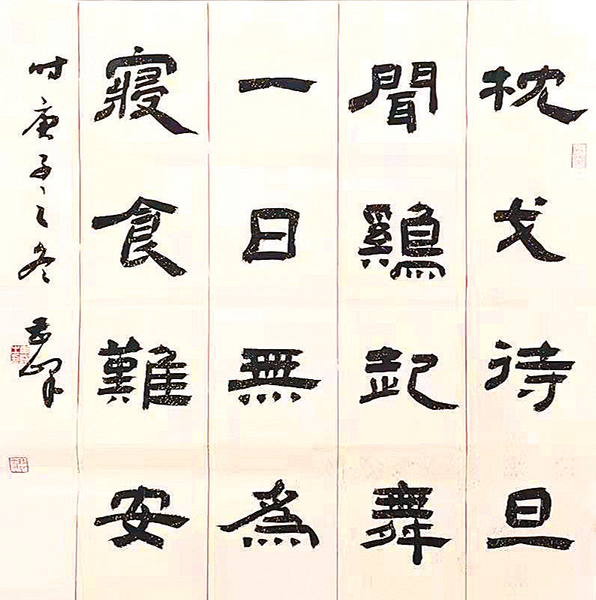 枕戈待旦
聞鷄起舞
一日無為
寢食難安
时庚子之冬